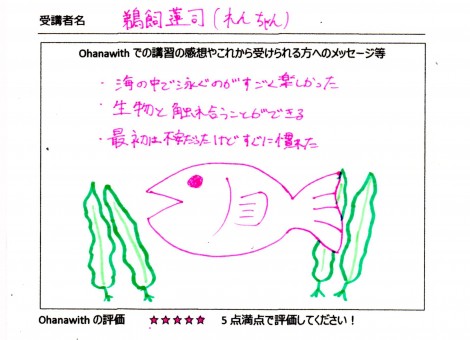 受講者名 鵜飼蓮司(れんちゃん)
Ohanawith での講習の感想やこれから受けられる方へのメッセージ等
・海の中で泳ぐのがすごく楽しかった
・生物と触れ合うことができる
・最初は不安だったけどすぐに慣れた
Ohanawith の評価 ★★★★★ 5 点満点で評価してください！